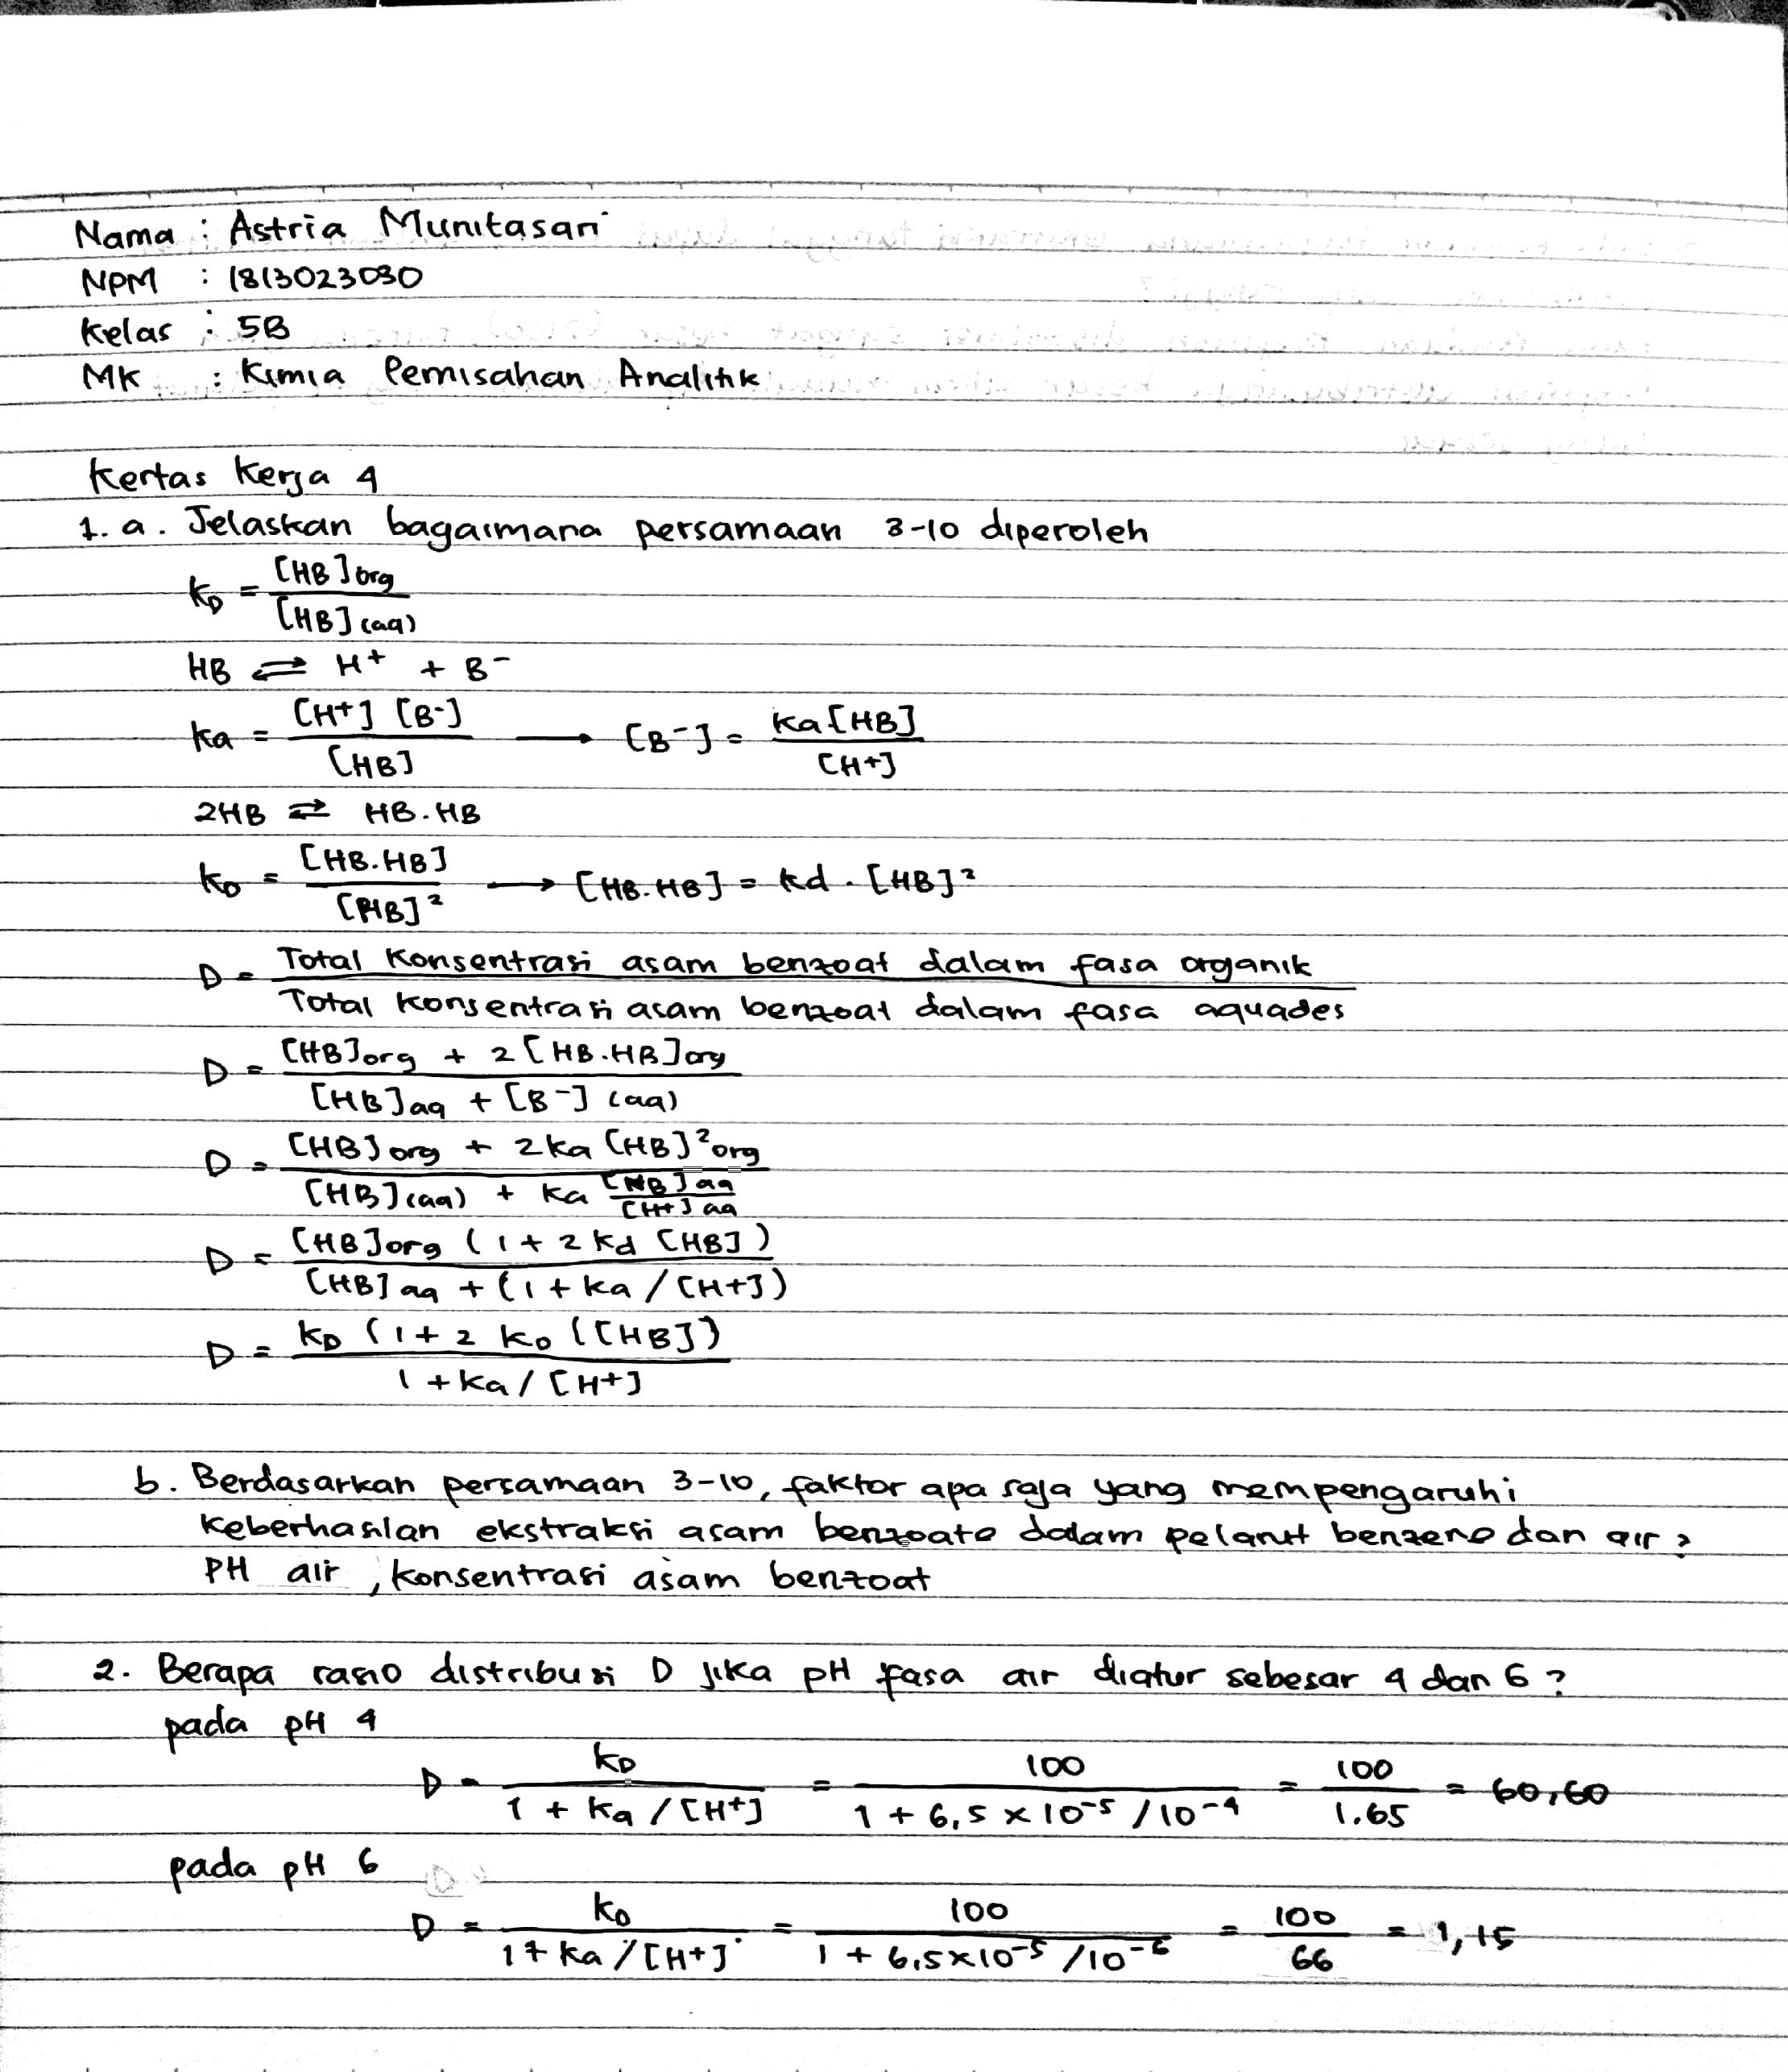 Nama : Astria Munitasari
NPM : 1813023030
Kelas : 5B
MK : Kimia Pemisahan Analitik
Kertas Kerja 4
1. a. Jelaskan bagaimana persamaan 3-10 diperoleh
KD = [HB]org / [HB](aq)
HB ⇌ H+ + B-
Ka = [H+] [B-] / [HB] → [B-] = Ka[HB] / [H+]
2HB ⇌ HB.HB
KD = [HB.HB] / [HB]² → [HB.HB] = Kd . [HB]²
D = Total Konsentrasi asam benzoat dalam fasa organik / Total Konsentrasi asam benzoat dalam fasa aquades
D = [HB]org + 2[HB.HB]org / [HB]aq + [B-](aq)
D = [HB]org + 2Ka[HB]²org / [HB](aq) + Ka [HB]aq/[H+]aq
D = [HB]org (1 + 2 Kd [HB]) / [HB]aq + (1 + Ka / [H+])
D = KD (1 + 2 KD ([HB]) / 1 + Ka / [H+]
b. Berdasarkan persamaan 3-10, faktor apa saja yang mempengaruhi
Keberhasilan ekstraksi asam benzoate dalam pelarut benzene dan air ?
PH air , konsentrasi asam benzoat
2. Berapa rasio distribusi D jika pH fasa air diatur sebesar 4 dan 6 ?
pada pH 4
D = KD / 1 + Ka / [H+] = 100 / 1 + 6,5 x 10-5 / 10-4 = 100 / 1.65 = 60,60
pada pH 6
D = KD / 1 + Ka / [H+] = 100 / 1 + 6,5x10-5 / 10-6 = 100 / 66 = 1,15